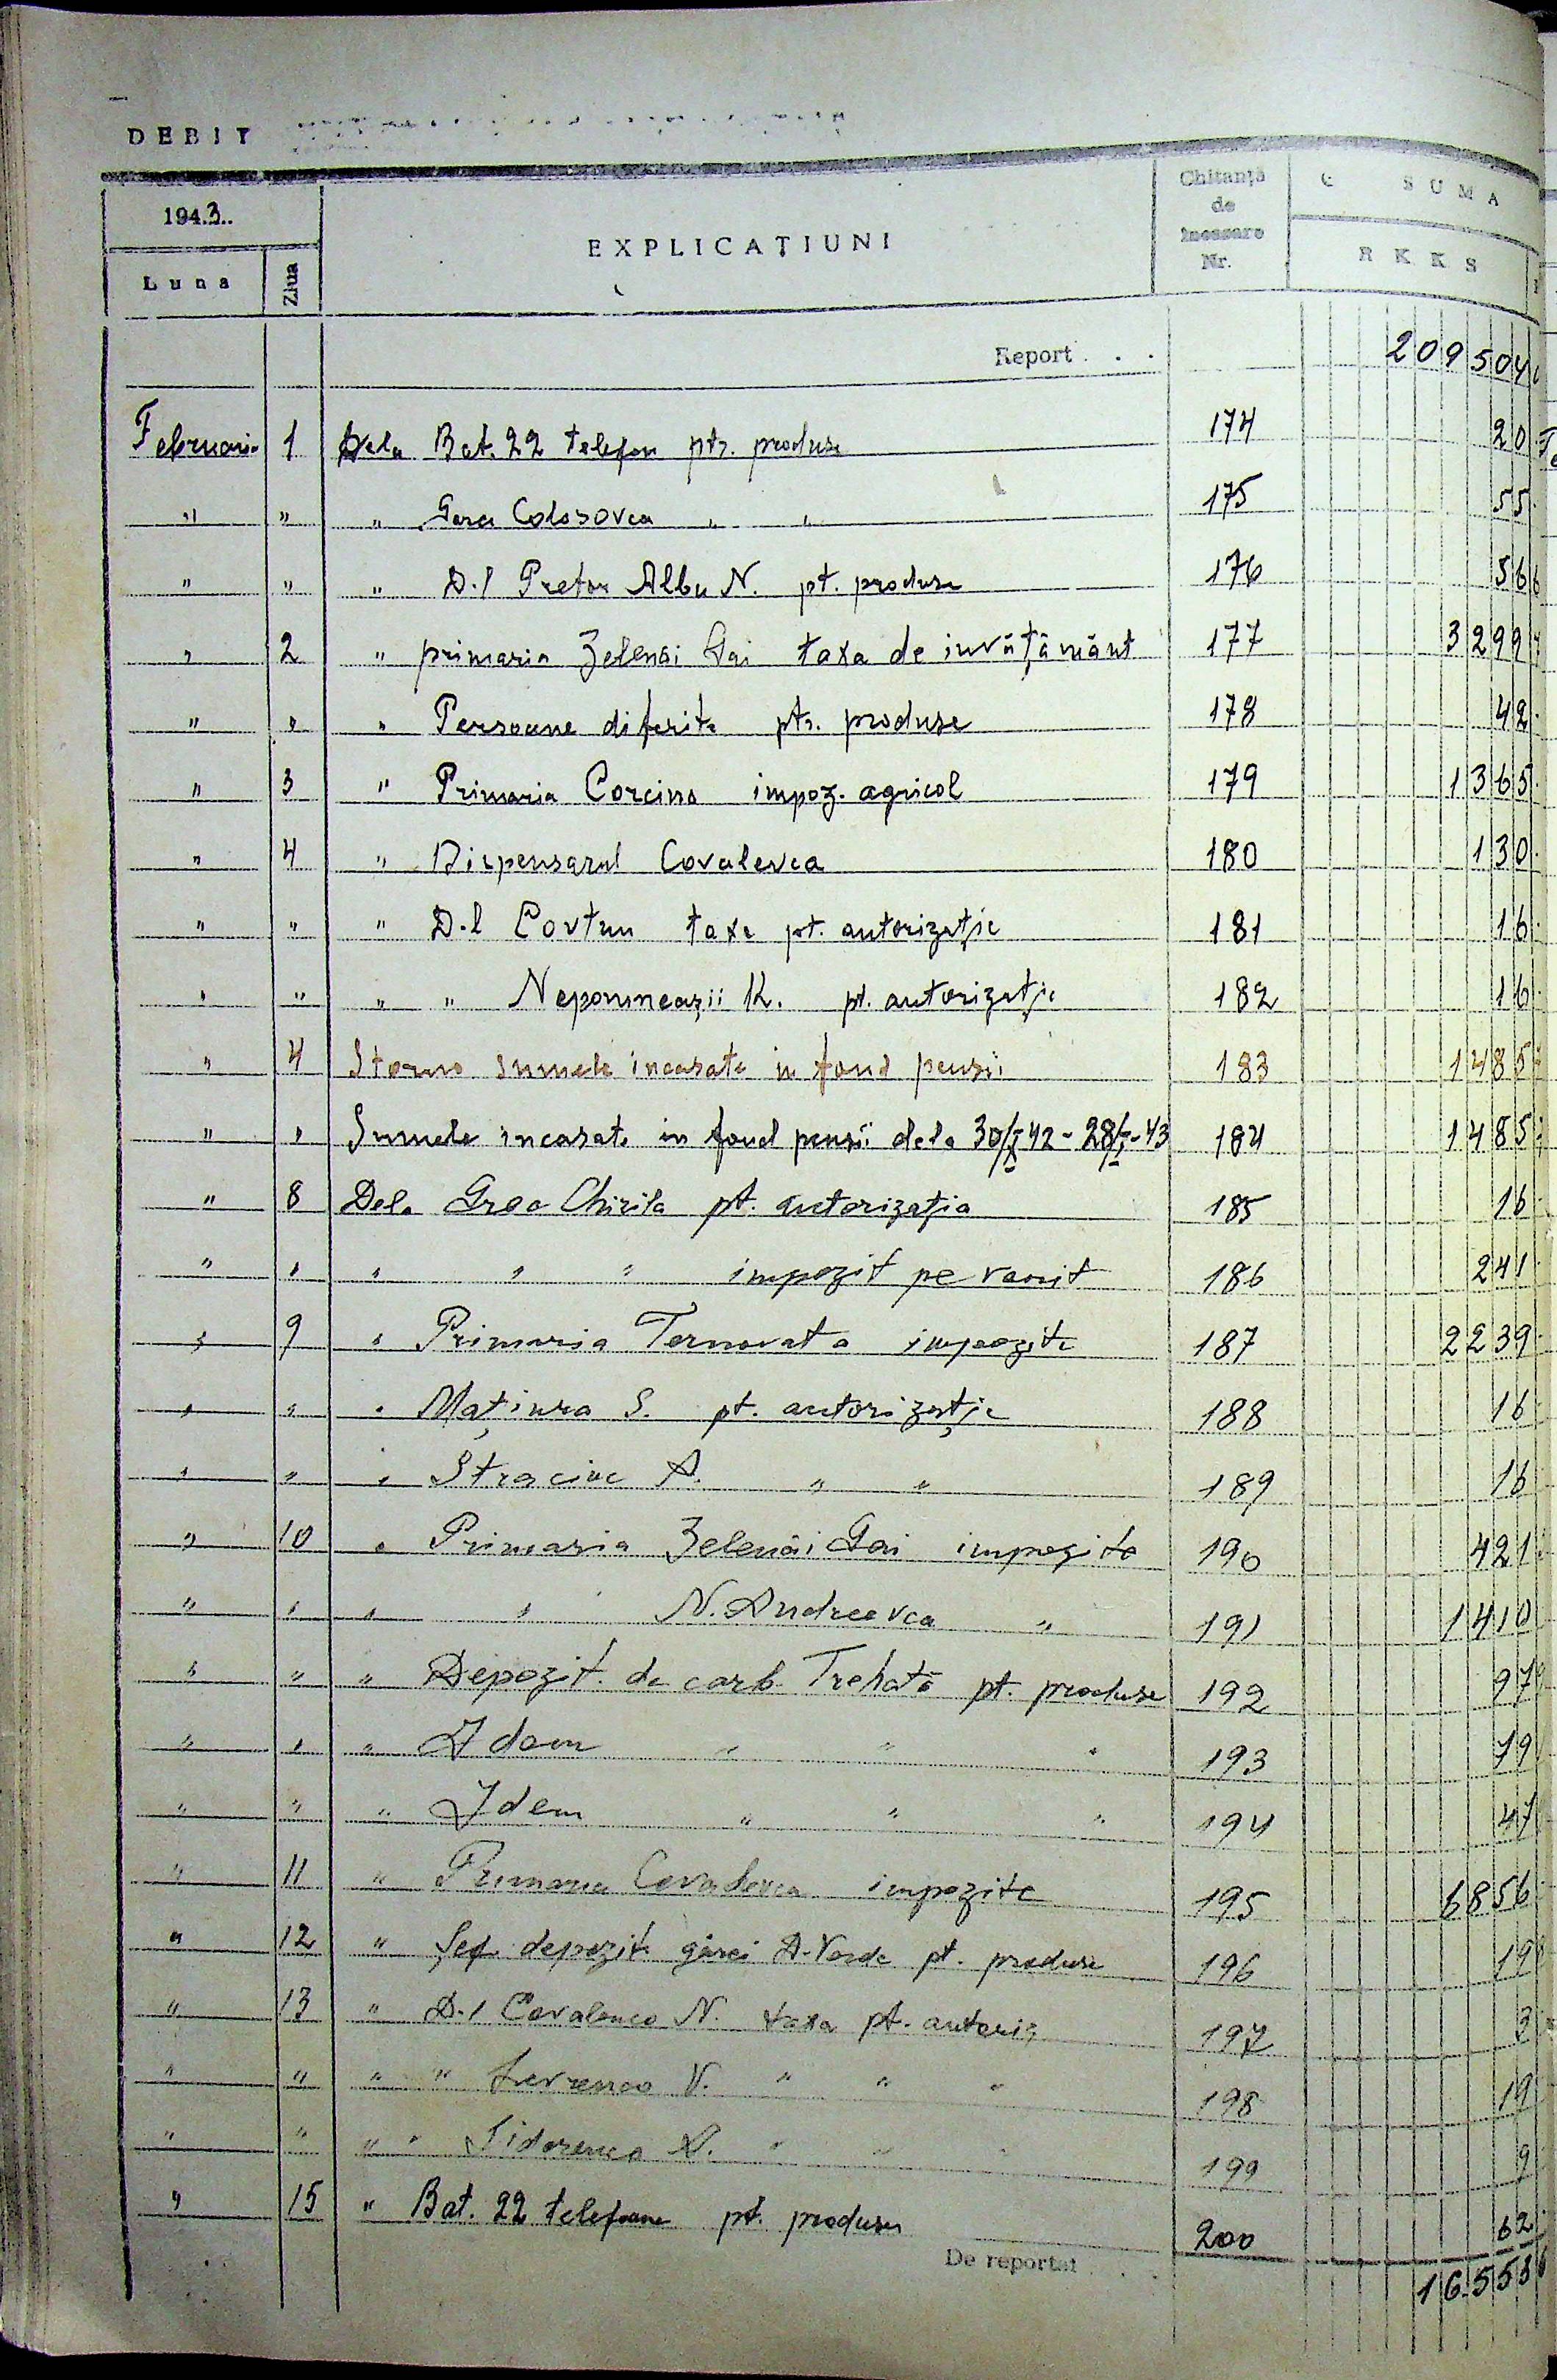 DEBIT
1943 EXPLICAȚIUNI Chitanță de încasare Nr. SUMA
Luna Ziua RKKS
Report . . . 209504
Februarie 1 Dela Bat. 22 telefon ptr. produse 174 20
" " " Gara Colosovca " " 175 55
" " " D-l Pretor Albu N. pt. produse 176 56
" 2 " primaria Zelenâi Gai taxa de învățământ 177 3299
" " " Persoane diferite ptr. produse 178 42
" 3 " Primaria Corcino impoz. agricol 179 1365
" 4 " Dispensarul Covalevca 180 130
" " " D-l Covtun taxa pt. autorizație 181 16
" " " " Nepomneașii K. pt. autorizație 182 16
" 4 Storno sumele incasate in fond pensii 183 1485
" " Sumele incasate in fond pensii dela 30/X-42 - 28/I-43 184 1485
" 8 Dela Groa Chirila pt. autorizația 185 16
" " " " " impozit pe venit 186 241
" 9 " Primaria Ternovata impozite 187 2239
" " " Mațiura S. pt. autorizație 188 16
" " " Straciuc A. " " 189 16
" 10 " Primaria Zelenâi Gai impozite 190 421
" " " " N. Andreevca " 191 1410
" " " Depozit. de carb. Trehată pt. produse 192 97
" " " Idem " " " 193 19
" " " Idem " " " 194 47
" 11 " Primaria Covalevca impozite 195 6856
" 12 " Șef. depozit gărei A-Verde pt. produse 196 19
" 13 " D-l Covalenco N. taxa pt. autoriz 197 3
" " " " Levrenco V. " " " 198 19
" " " " Sidorenco A. " " " 199 9
" 15 " Bat. 22 telefoane pt. produse 200 62
De reportat . . . 16553